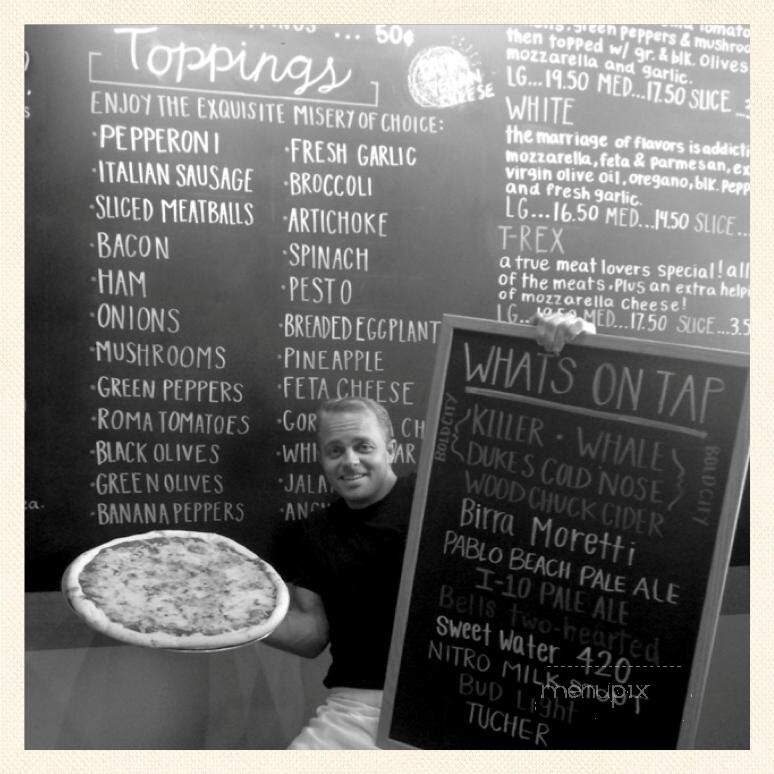 ... 50¢
Toppings
ENJOY THE EXQUISITE MISERY OF CHOICE:
·PEPPERONI
·ITALIAN SAUSAGE
·SLICED MEATBALLS
·BACON
·HAM
·ONIONS
·MUSHROOMS
·GREEN PEPPERS
·ROMA TOMATOES
·BLACK OLIVES
·GREEN OLIVES
·BANANA PEPPERS
·FRESH GARLIC
·BROCCOLI
·ARTICHOKE
·SPINACH
·PESTO
·BREADED EGGPLANT
·PINEAPPLE
·FETA CHEESE
green peppers &
then topped w/ gr. & blk. olives
mozzarella and garlic.
LG...19.50 MED...17.50 SLICE
WHITE
the marriage of flavors is
mozzarella, feta & parmesan,
virgin olive oil, oregano, blk.
and fresh garlic.
LG...16.50 MED...14.50 SLICE...
T-REX
a true meat lovers special! all
of the meats. Plus an extra
of mozzarella cheese!
LG... MED...17.50 SLICE...3.5
WHATS ON TAP
BOLD CITY
KILLER · WHALE
DUKES COLD NOSE
BOLD CITY
WOODCHUCK CIDER
Birra Moretti
PABLO BEACH PALE ALE
I-10 PALE ALE
Bells two-hearted
Sweet Water 420
NITRO MILK STOUT
Bud Light
TUCHER
menupix